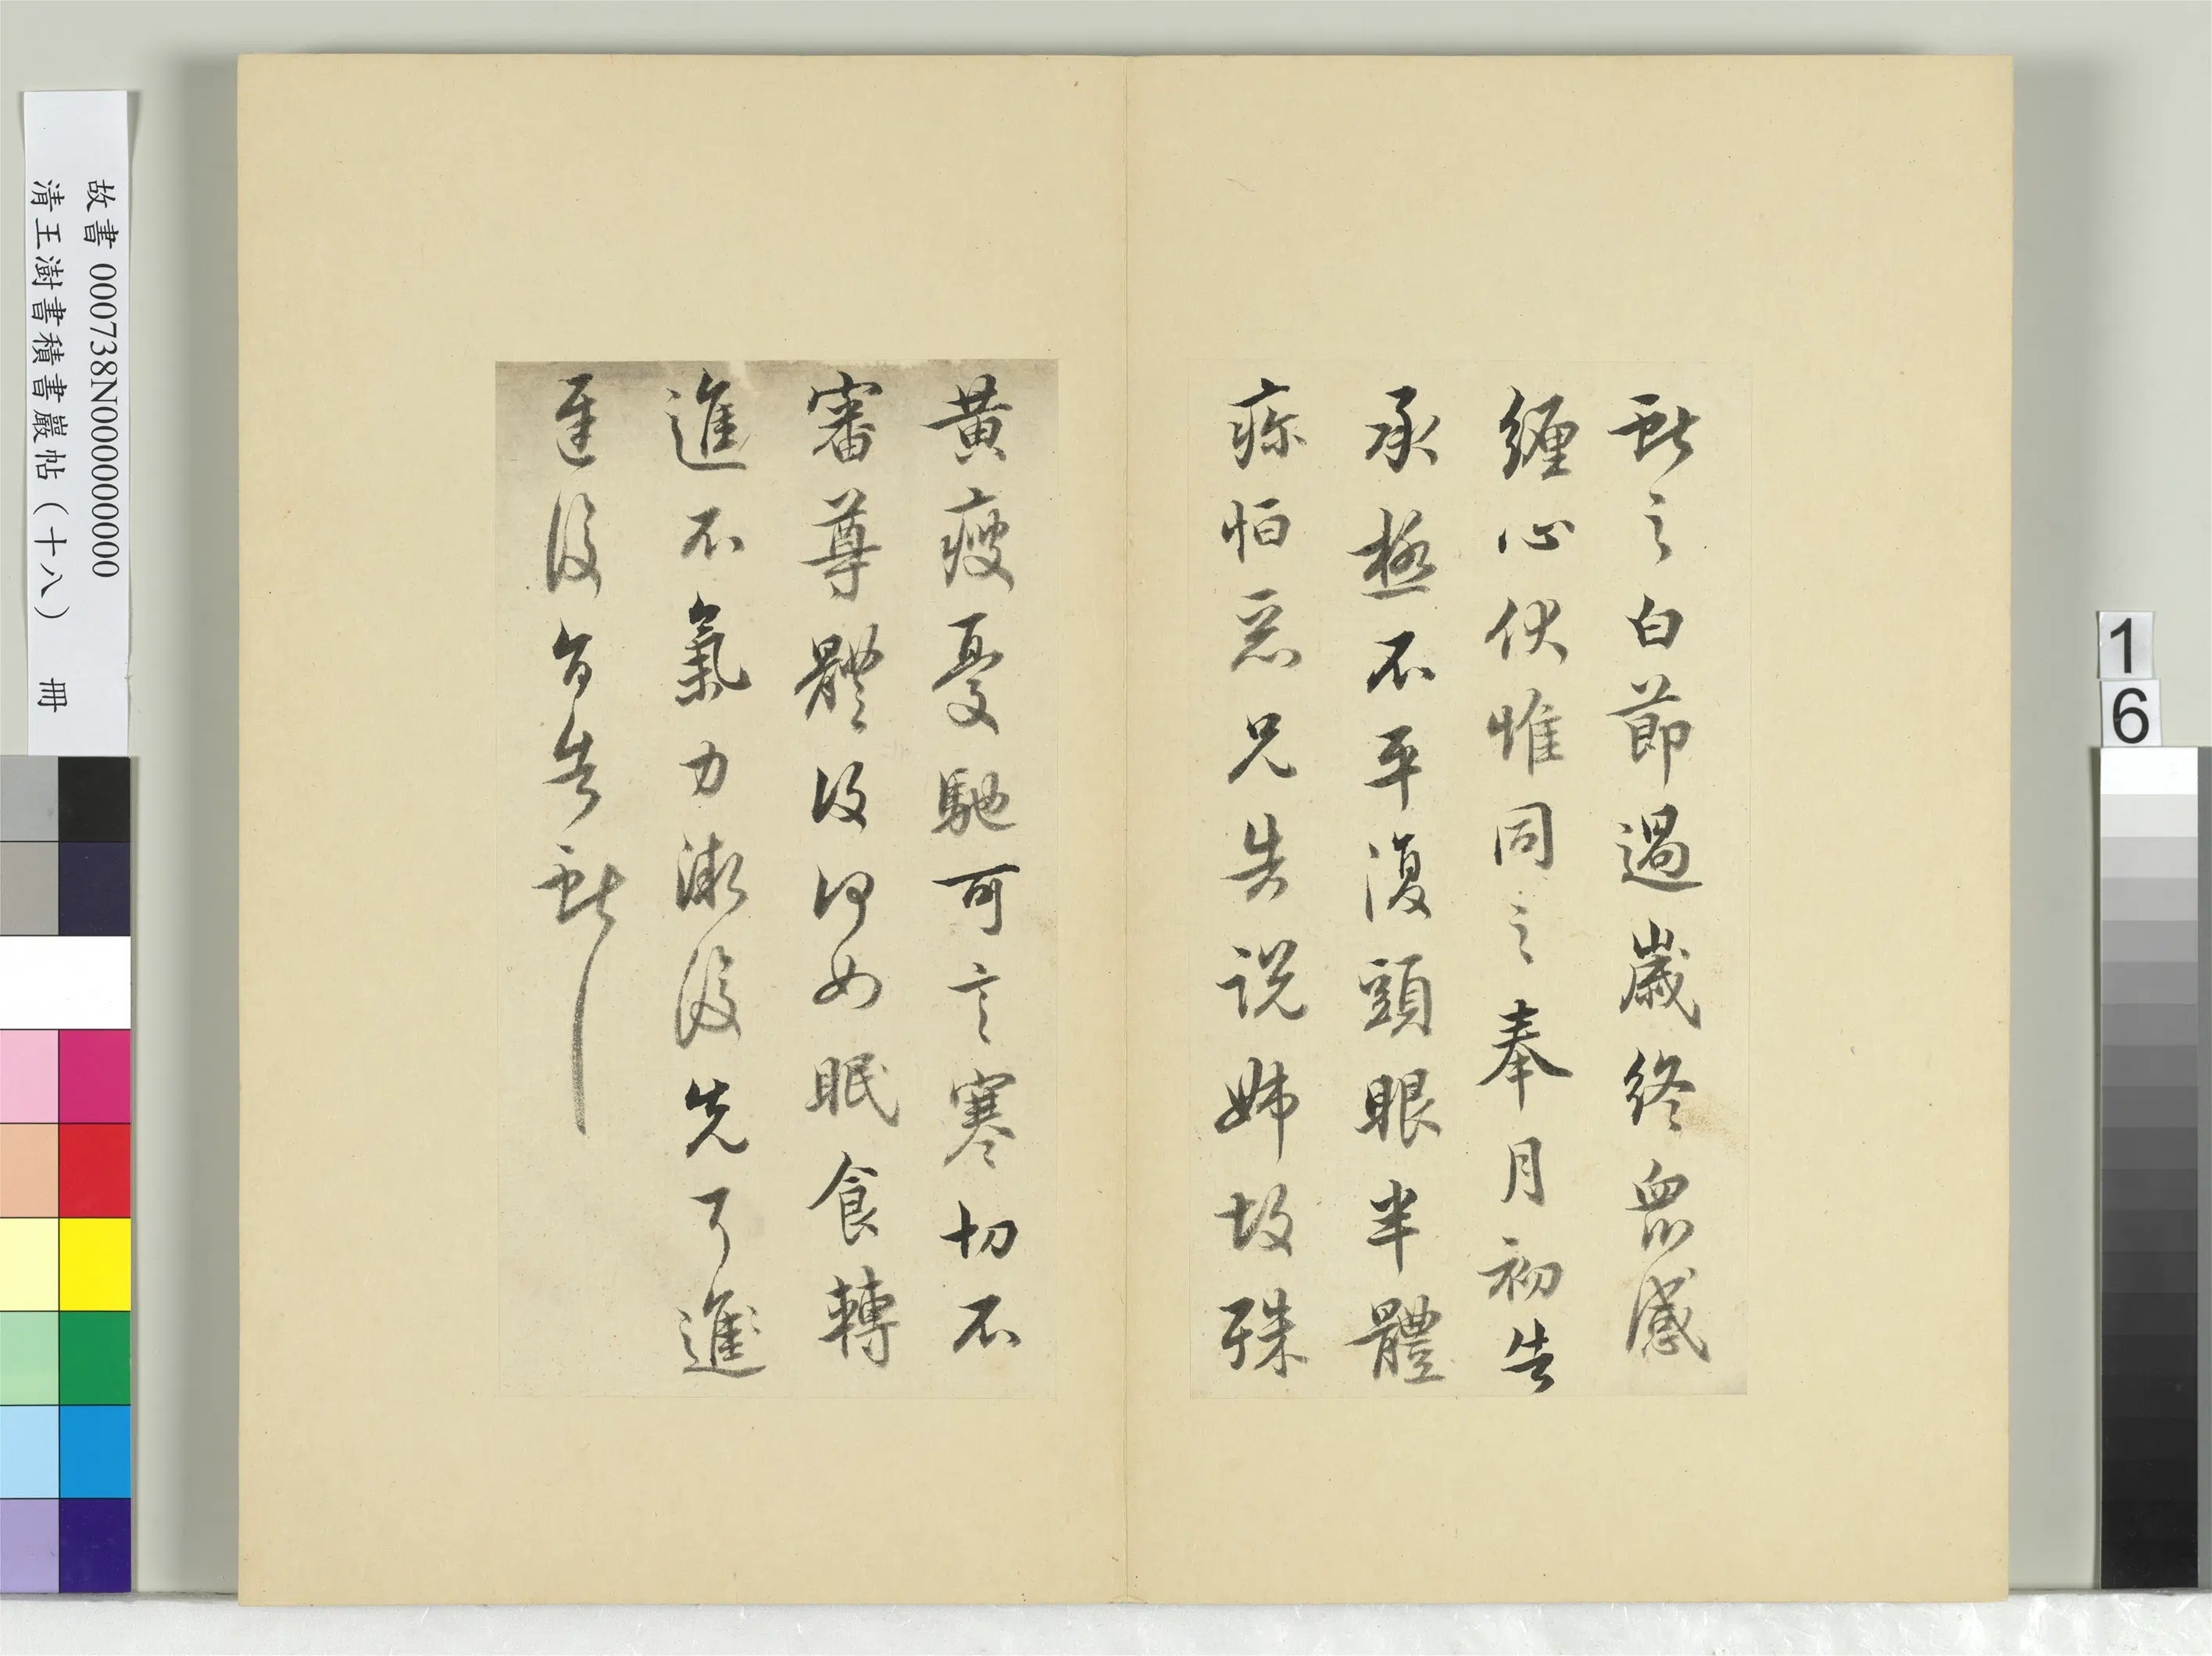 獻之白節過歲終眾感
纏心伏惟同之奉月初告
承極不平復頭眼半體
疼怕惡兄告說姊故殊
黃瘦憂馳可言寒切不
審尊體復何如眠食轉
進不氣力漸復先可進
退復旨告獻
故書 000738N000000000
清王澍書積書巖帖（十八） 冊
1
6